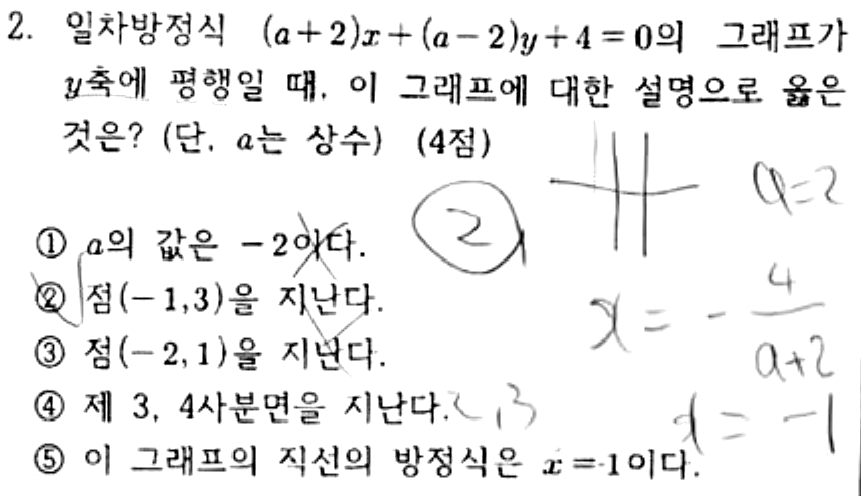 2. 일차방정식 (a+2)x+(a-2)y+4=0의 그래프가
y축에 평행일 때, 이 그래프에 대한 설명으로 옳은
것은? (단, a는 상수) (4점)
a=2
2
① a의 값은 -2이다.
② 점(-1,3)을 지난다.
x = - 4/(a+2)
③ 점(-2,1)을 지난다.
④ 제 3, 4사분면을 지난다. 2,3
x = -1
⑤ 이 그래프의 직선의 방정식은 x=1이다.